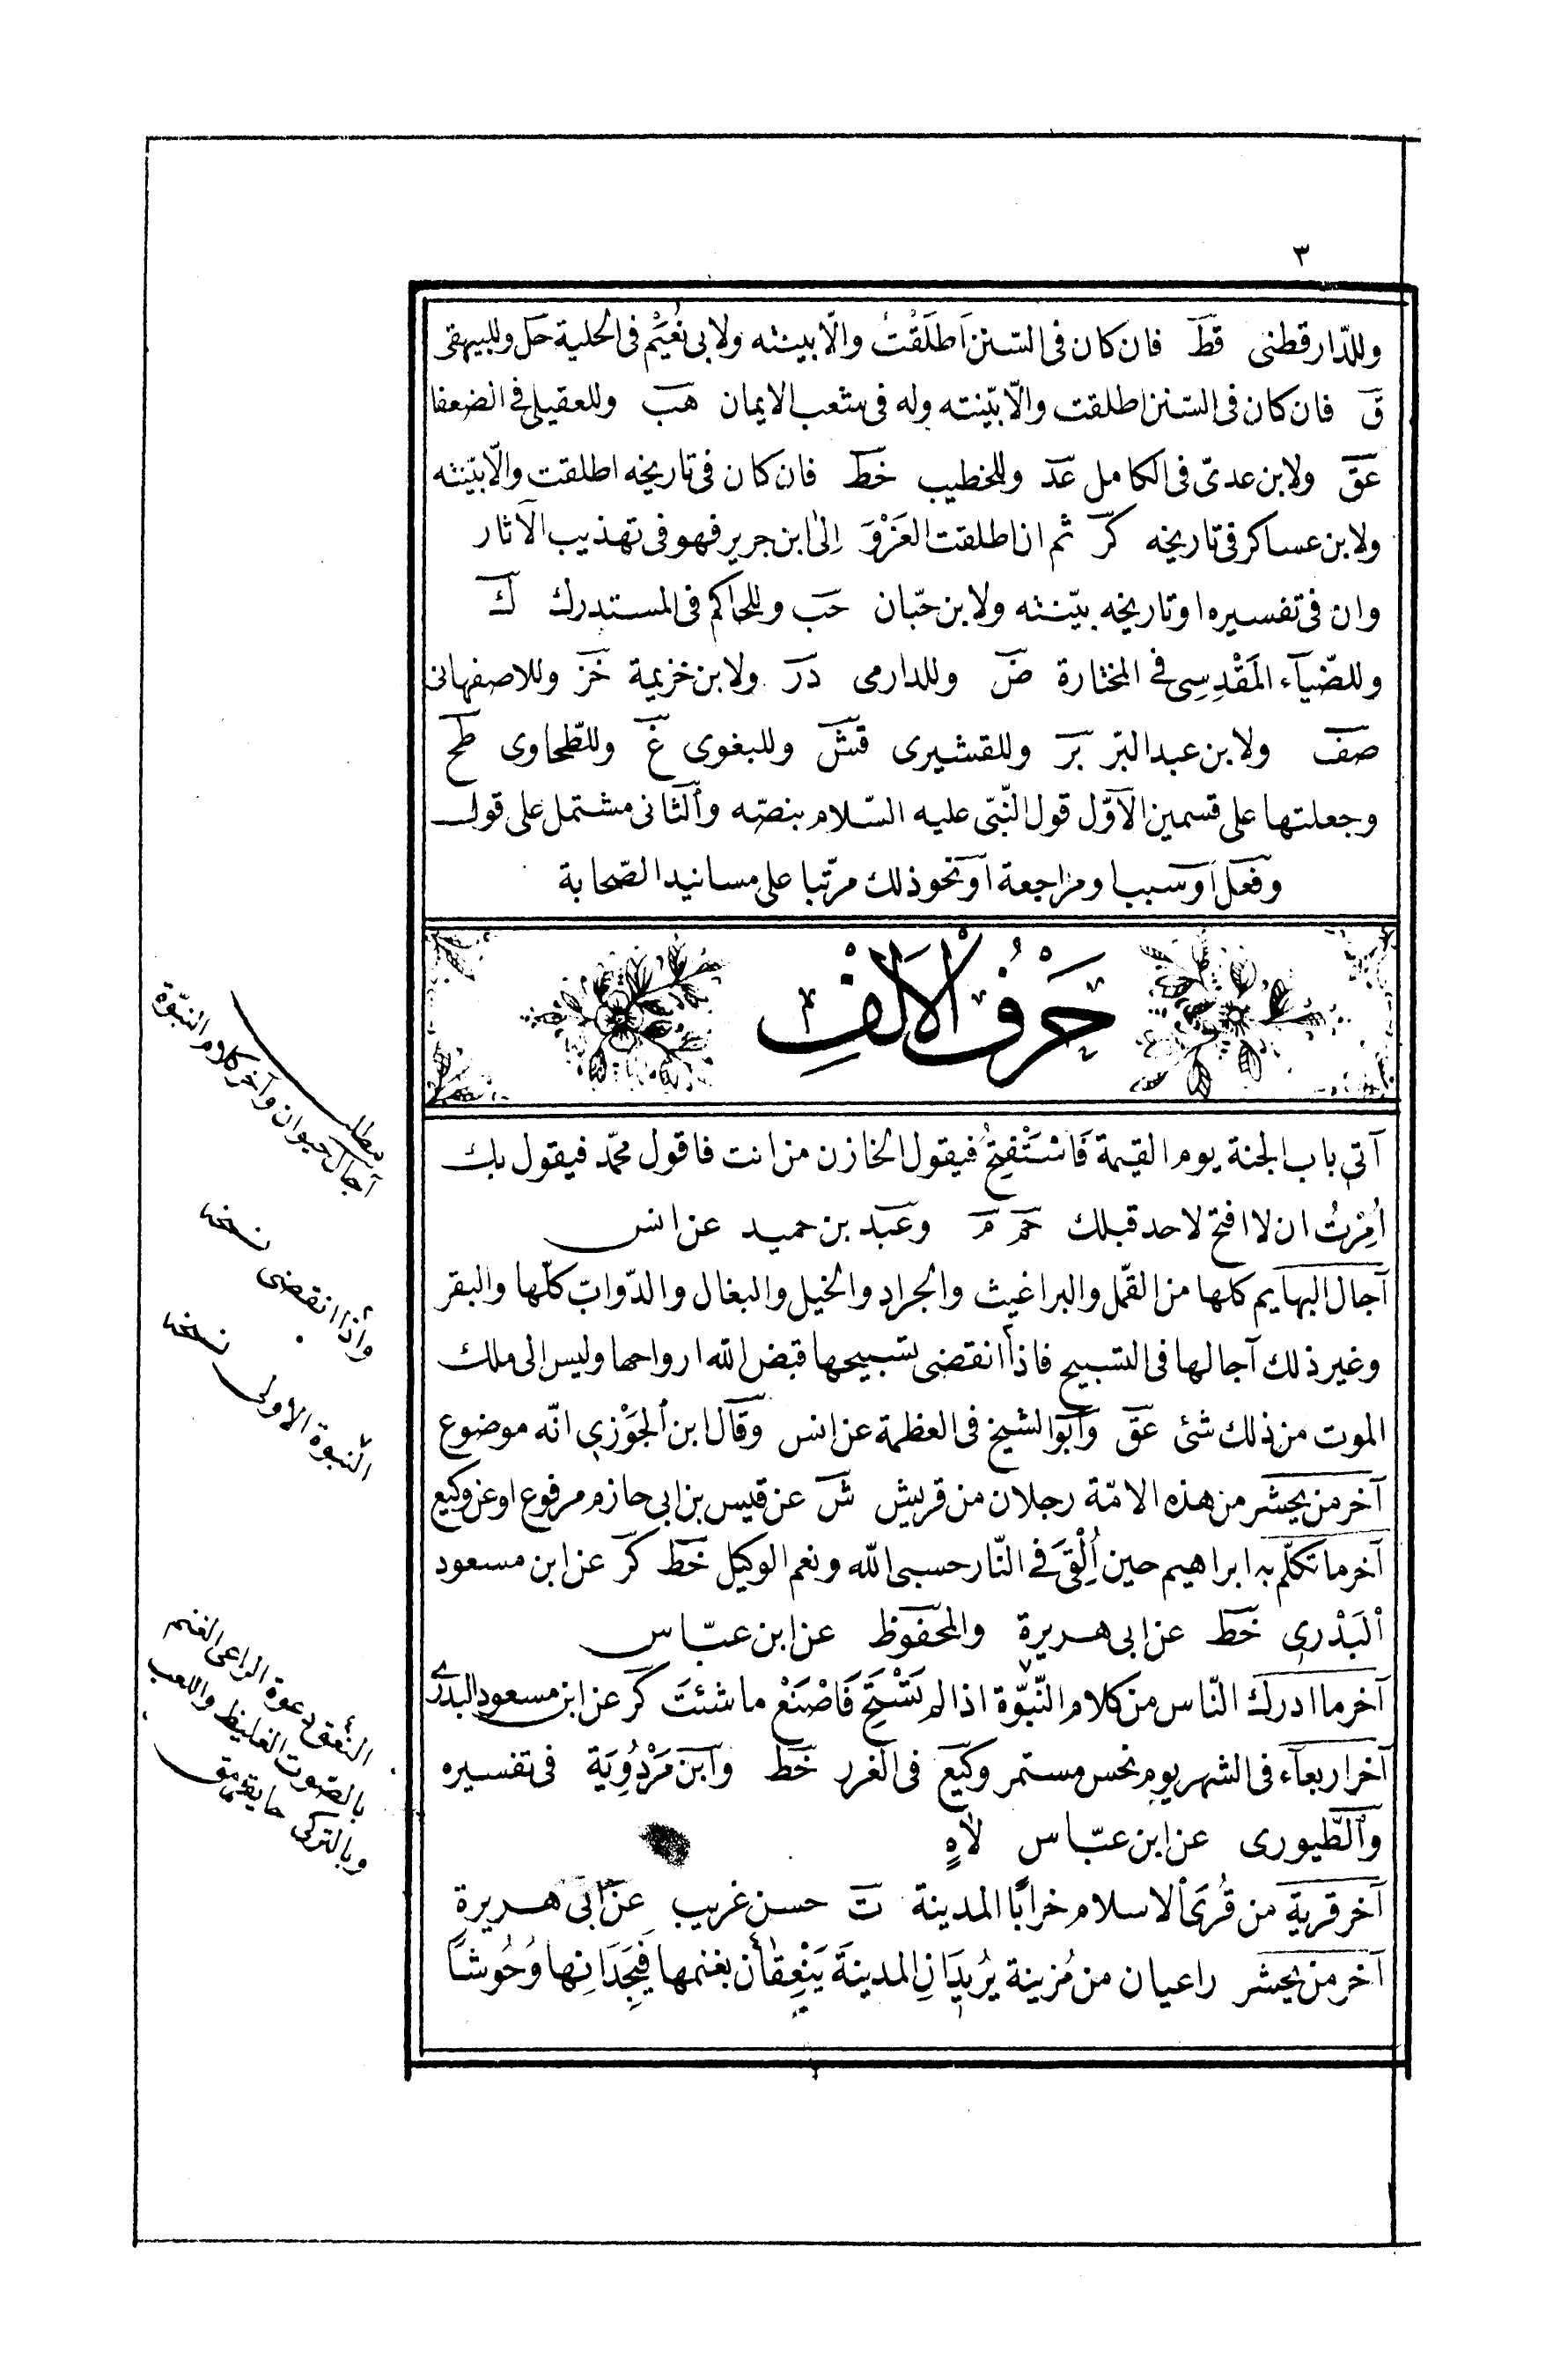 ٣
وللدّارقطنى قط فان كان فى السّنن اَطلَقْتُ والّا بينته ولابى نُعَيْم فى الحلية حل وللبيهقى
ق فان كان فى السّنن اطلقت والّا بيّنته وله فى شعب الايمان هب وللعقيلى فى الضعفا
عق ولابن عدىّ فى الكامل عد وللخطيب خط فان كان فى تاريخه اطلقت والّا بيّنته
ولابن عساكر فى تاريخه كر ثم ان اطلقت العَزْوَ اِلىٰ ابن جرير فهو فى تهذيب الآثار
وان فى تفسيره او تاريخه بيّنته ولابن حبّان حب وللحاكم فى المستدرك ك
وللضّيآء المَقْدِسِى فى المختارة ض وللدارمى در ولابن خزيمة خز وللاصفهانى
صف ولابن عبد البّر بر وللقشيرى قش وللبغوى غ وللطّحاوى طح
وجعلتها على قسمين الاوّل قول النّبّى عليه السّلام بنصّه والثانى مشتمل على قول
وفعل او سبب او مراجعة او نحو ذلك مرتّبا على مسانيد الصّحابة
حَرْفُ الْاَلِفْ
آتى باب الجنة يوم القيمة فَاسْتَفْتِحُ فيقول الخازن من انت فاقول محمّد فيقول بك
اُمِرْتُ ان لا افتح لاحد قبلك حم م وعبد بن حميد عن انس
آجال البهايم كلها من القمّل والبراغيث والجراد والخيل والبغال والدّوابّ كلّها والبقر
وغير ذلك آجالها فى التسبيح فاذا انقضى تسبيحها قبض الله ارواحها وليس الى ملك
الموت من ذلك شئ عق وابو الشيخ فى العظمة عن انس وقال ابن الجَوْزِى انّه موضوع
آخر من يحشر من هذه الامّة رجلان من قريش ش عن قيس بن ابى حازم مرفوع او عن وكيع
آخر ما تكلّم به ابراهيم حين اُلْقِىَ فى النّار حسبى الله ونعم الوكيل خط كر عن ابن مسعود
اْلبَدْرى خط عن ابى هريرة والمحفوظ عن ابن عبّاس
آخر ما ادرك النّاس من كلام النّبوّة اذا لم تَسْتَحِ فَاصْنَعْ ما شئتَ كر عن ابن مسعود البدرى
آخر اربعآء فى الشهر يوم نحس مستمر وكيع فى الغرر خط وابن مَرْدُوِيَة فى تفسيره
والطّيورى عن ابن عبّاس لاٰهٍ
آخر قرية من قُرَى الاسلام خرابًا المدينة ت حسن غريب عن ابى هريرة
آخر من يحشر راعيان من مُزينة يُريدَانِ المدينَة يَنْعِقاٰن بغنمها فَيَجِدَانِها وُحُوشًا
مطلب
آجال حيوان وآخر كلام النبوّة
واذا انقضى نسخه
النبوة الاولى نسخه
النّعق دعوة الراعى الغنم
بالصّوت الغليظ واللعب
وبالتركى حايقرمق